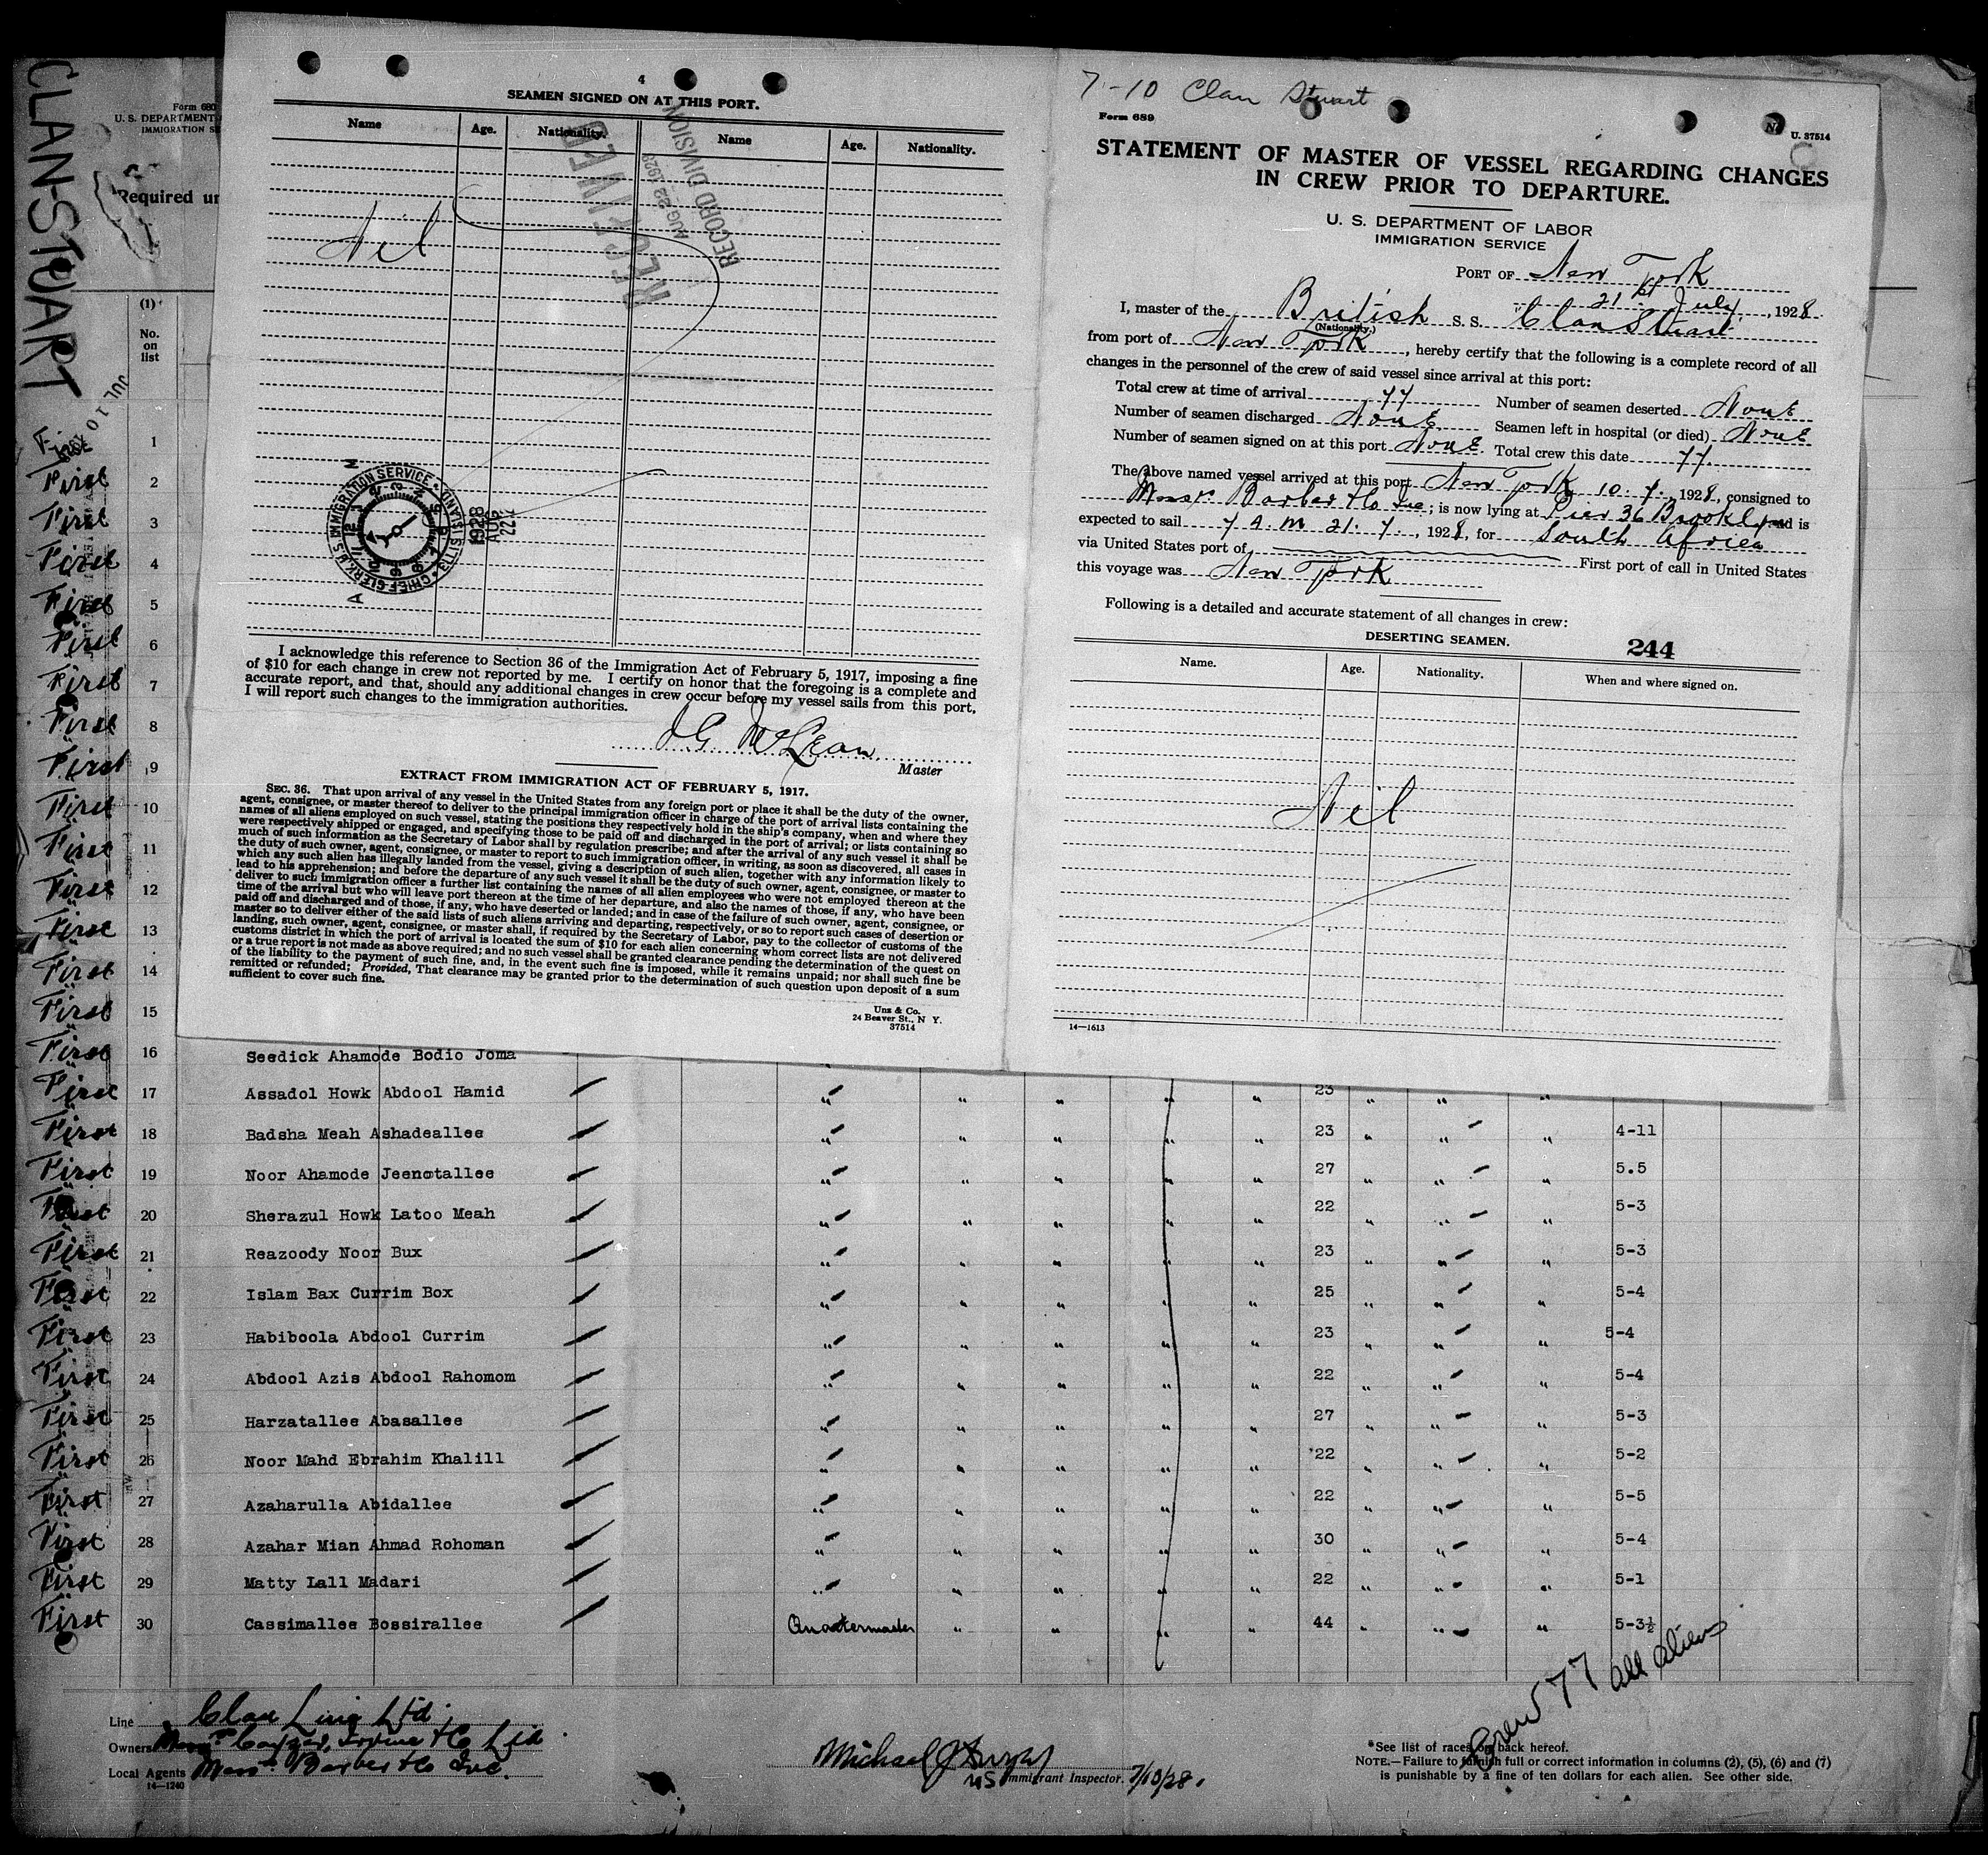 CLAN-STUART
Form 680
U. S. DEPARTMENT
IMMIGRATION SE
Required un
(1)
No.
on
list
JUL 10 1928
4
SEAMEN SIGNED ON AT THIS PORT.
Name Age. Nationality. Name Age. Nationality.
RECEIVED
AUG 22 1928
RECORD DIVISION
Nil
U.S. IMMIGRATION SERVICE
CHIEF CLERK
ELLIS ISLAND
1928
AUG
22
I acknowledge this reference to Section 36 of the Immigration Act of February 5, 1917, imposing a fine
of $10 for each change in crew not reported by me. I certify on honor that the foregoing is a complete and
accurate report, and that, should any additional changes in crew occur before my vessel sails from this port,
I will report such changes to the immigration authorities.
J G McLean
Master
EXTRACT FROM IMMIGRATION ACT OF FEBRUARY 5, 1917.
SEC. 36. That upon arrival of any vessel in the United States from any foreign port or place it shall be the duty of the owner,
agent, consignee, or master thereof to deliver to the principal immigration officer in charge of the port of arrival lists containing the
names of all aliens employed on such vessel, stating the positions they respectively hold in the ship's company, when and where they
were respectively shipped or engaged, and specifying those to be paid off and discharged in the port of arrival; or lists containing so
much of such information as the Secretary of Labor shall by regulation prescribe; and after the arrival of any such vessel it shall be
the duty of such owner, agent, consignee, or master to report to such immigration officer, in writing, as soon as discovered, all cases in
which any such alien has illegally landed from the vessel, giving a description of such alien, together with any information likely to
lead to his apprehension; and before the departure of any such vessel it shall be the duty of such owner, agent, consignee, or master to
deliver to such immigration officer a further list containing the names of all alien employees who were not employed thereon at the
time of the arrival but who will leave port thereon at the time of her departure, and also the names of those, if any, who have been
paid off and discharged and of those, if any, who have deserted or landed; and in case of the failure of such owner, agent, consignee, or
master so to deliver either of the said lists of such aliens arriving and departing, respectively, or so to report such cases of desertion or
landing, such owner, agent, consignee, or master shall, if required by the Secretary of Labor, pay to the collector of customs of the
customs district in which the port of arrival is located the sum of $10 for each alien concerning whom correct lists are not delivered
or a true report is not made as above required; and no such vessel shall be granted clearance pending the determination of the quest on
of the liability to the payment of such fine, and, in the event such fine is imposed, while it remains unpaid; nor shall such fine be
remitted or refunded; Provided, That clearance may be granted prior to the determination of such question upon deposit of a sum
sufficient to cover such fine.
Unz & Co.
24 Beaver St., N Y.
37514
7-10 Clan Stuart
Form 689
U. 37514
STATEMENT OF MASTER OF VESSEL REGARDING CHANGES
IN CREW PRIOR TO DEPARTURE.
U. S. DEPARTMENT OF LABOR
IMMIGRATION SERVICE
PORT OF New York
21st July, 1928.
I, master of the British S. S. Clan Stuart
(Nationality.)
from port of New York, hereby certify that the following is a complete record of all
changes in the personnel of the crew of said vessel since arrival at this port:
Total crew at time of arrival 77 Number of seamen deserted None
Number of seamen discharged None Seamen left in hospital (or died) None
Number of seamen signed on at this port None. Total crew this date 77.
The above named vessel arrived at this port New York 10. 7., 1928, consigned to
Messrs Barber & Co Inc; is now lying at Pier 36 Brooklyn and is
expected to sail 7 A. M 21. 7., 1928, for South Africa
via United States port of First port of call in United States
this voyage was New York
Following is a detailed and accurate statement of all changes in crew:
DESERTING SEAMEN. 244
Name. Age. Nationality. When and where signed on.
Nil
14—1613
First 1
First 2
First 3
First 4
First 5
First 6
First 7
First 8
First 9
First 10
First 11
First 12
First 13
First 14
First 15
First 16 Seedick Ahamode Bodio Joma
First 17 Assadol Howk Abdool Hamid " " " " " 23 " " "
First 18 Badsha Meah Ashadeallee " " " " " 23 " " " 4-11
First 19 Noor Ahamode Jeenotallee " " " " " 27 " " " 5.5
First 20 Sherazul Howk Latoo Meah " " " " " 22 " " " 5-3
First 21 Reazoody Noor Bux " " " " " 23 " " " 5-3
First 22 Islam Bax Currim Box " " " " " 25 " " " 5-4
First 23 Habiboola Abdool Currim " " " " " 23 " " " 5-4
First 24 Abdool Azis Abdool Rahomom " " " " " 22 " " " 5-4
First 25 Harzatallee Abasallee " " " " " 27 " " " 5-3
First 26 Noor Mahd Ebrahim Khalill " " " " " 22 " " " 5-2
First 27 Azaharulla Abidallee " " " " " 22 " " " 5-5
First 28 Azahar Mian Ahmad Rohoman " " " " " 30 " " " 5-4
First 29 Matty Lall Madari " " " " " 22 " " " 5-1
First 30 Cassimallee Bossirallee Quartermaster " " " " 44 " " " 5-3½
Crew 77 all aliens
Line Clan Line Ltd.
Owners Messrs Cayzer, Irvine & Co Ltd
Local Agents Messrs Barber & Co Inc.
14—1240
Michael J
US Immigrant Inspector. 7/10/28.
*See list of races on back hereof.
NOTE.—Failure to furnish full or correct information in columns (2), (5), (6) and (7)
is punishable by a fine of ten dollars for each alien. See other side.